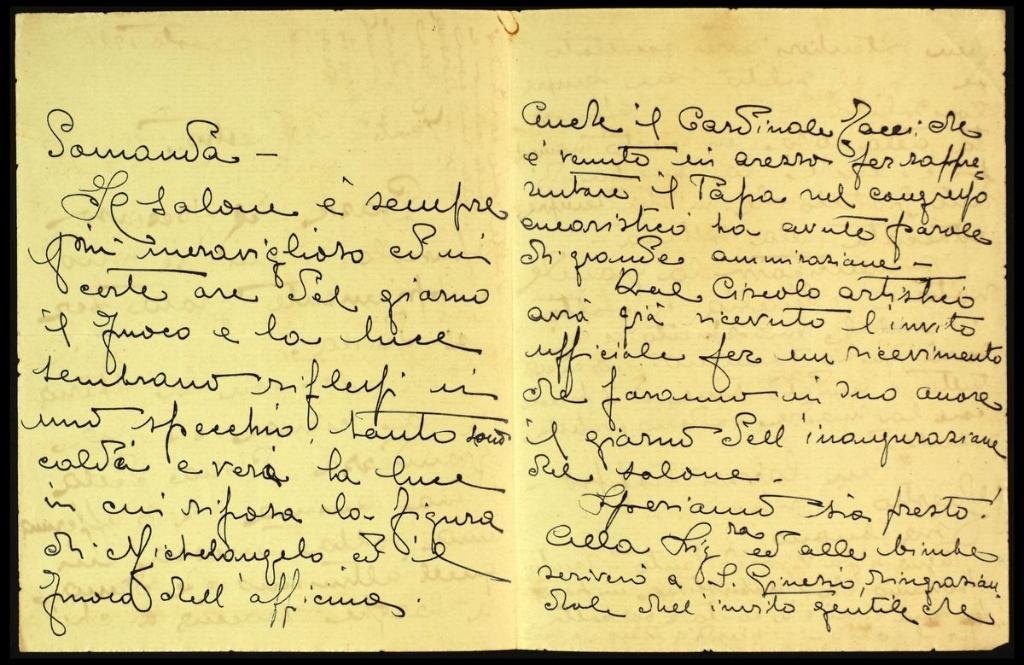 Domanda -
Il salone è sempre
più meraviglioso ed in
certe ore del giorno
il fuoco e la luce
sembrano riflessi in
uno specchio, tanto sono
calda e vera la luce
in cui riposa la figura
di Michelangelo ed il
fuoco dell'officina.
Anche il Cardinale che
è venuto in Arezzo per rappre=
sentare il Papa nel congresso
eucaristico ha avuto parole
di grande ammirazione -
Dal Circolo artistico
avrà già ricevuto l'invito
ufficiale per un ricevimento
che faranno in suo onore
il giorno dell'inaugurazione
del salone.
Speriamo sia presto!
Alla Sig.ra ed alle bimbe
scriverò a S. Ginesio, ringrazian
dole dell'invito gentile che